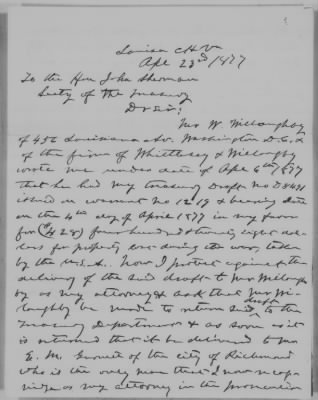 Louisa C H V
Apl 23rd 1877
To the Hon John Sherman
Secty of the Treasury
Dr Sir:
Mr W. Willoughby
of 456 Louisiana Av. Washington D.C. &
of the firm of Whittlesey & Willoughby
wrote me under date of Apl 6th 1877
that he had my Treasury Draft No
issued on warrant No 1219 & bearing date
on the 4th day of April 1877 in my favor
for ($428) four hundred & twenty eight dol
lars for property lost during the war, taken
by the U.S.A. Now I protest against the
delivery of the said draft to Mr Willough
by as my attorney & ask that Mr Wi-
lloughby be made to return said draft to the
Treasury Department & as soon as it
is returned that it be delivered to Mr
E. M. of the city of Richmond
who is the only man that I now recog
nize as my attorney in the prosecution